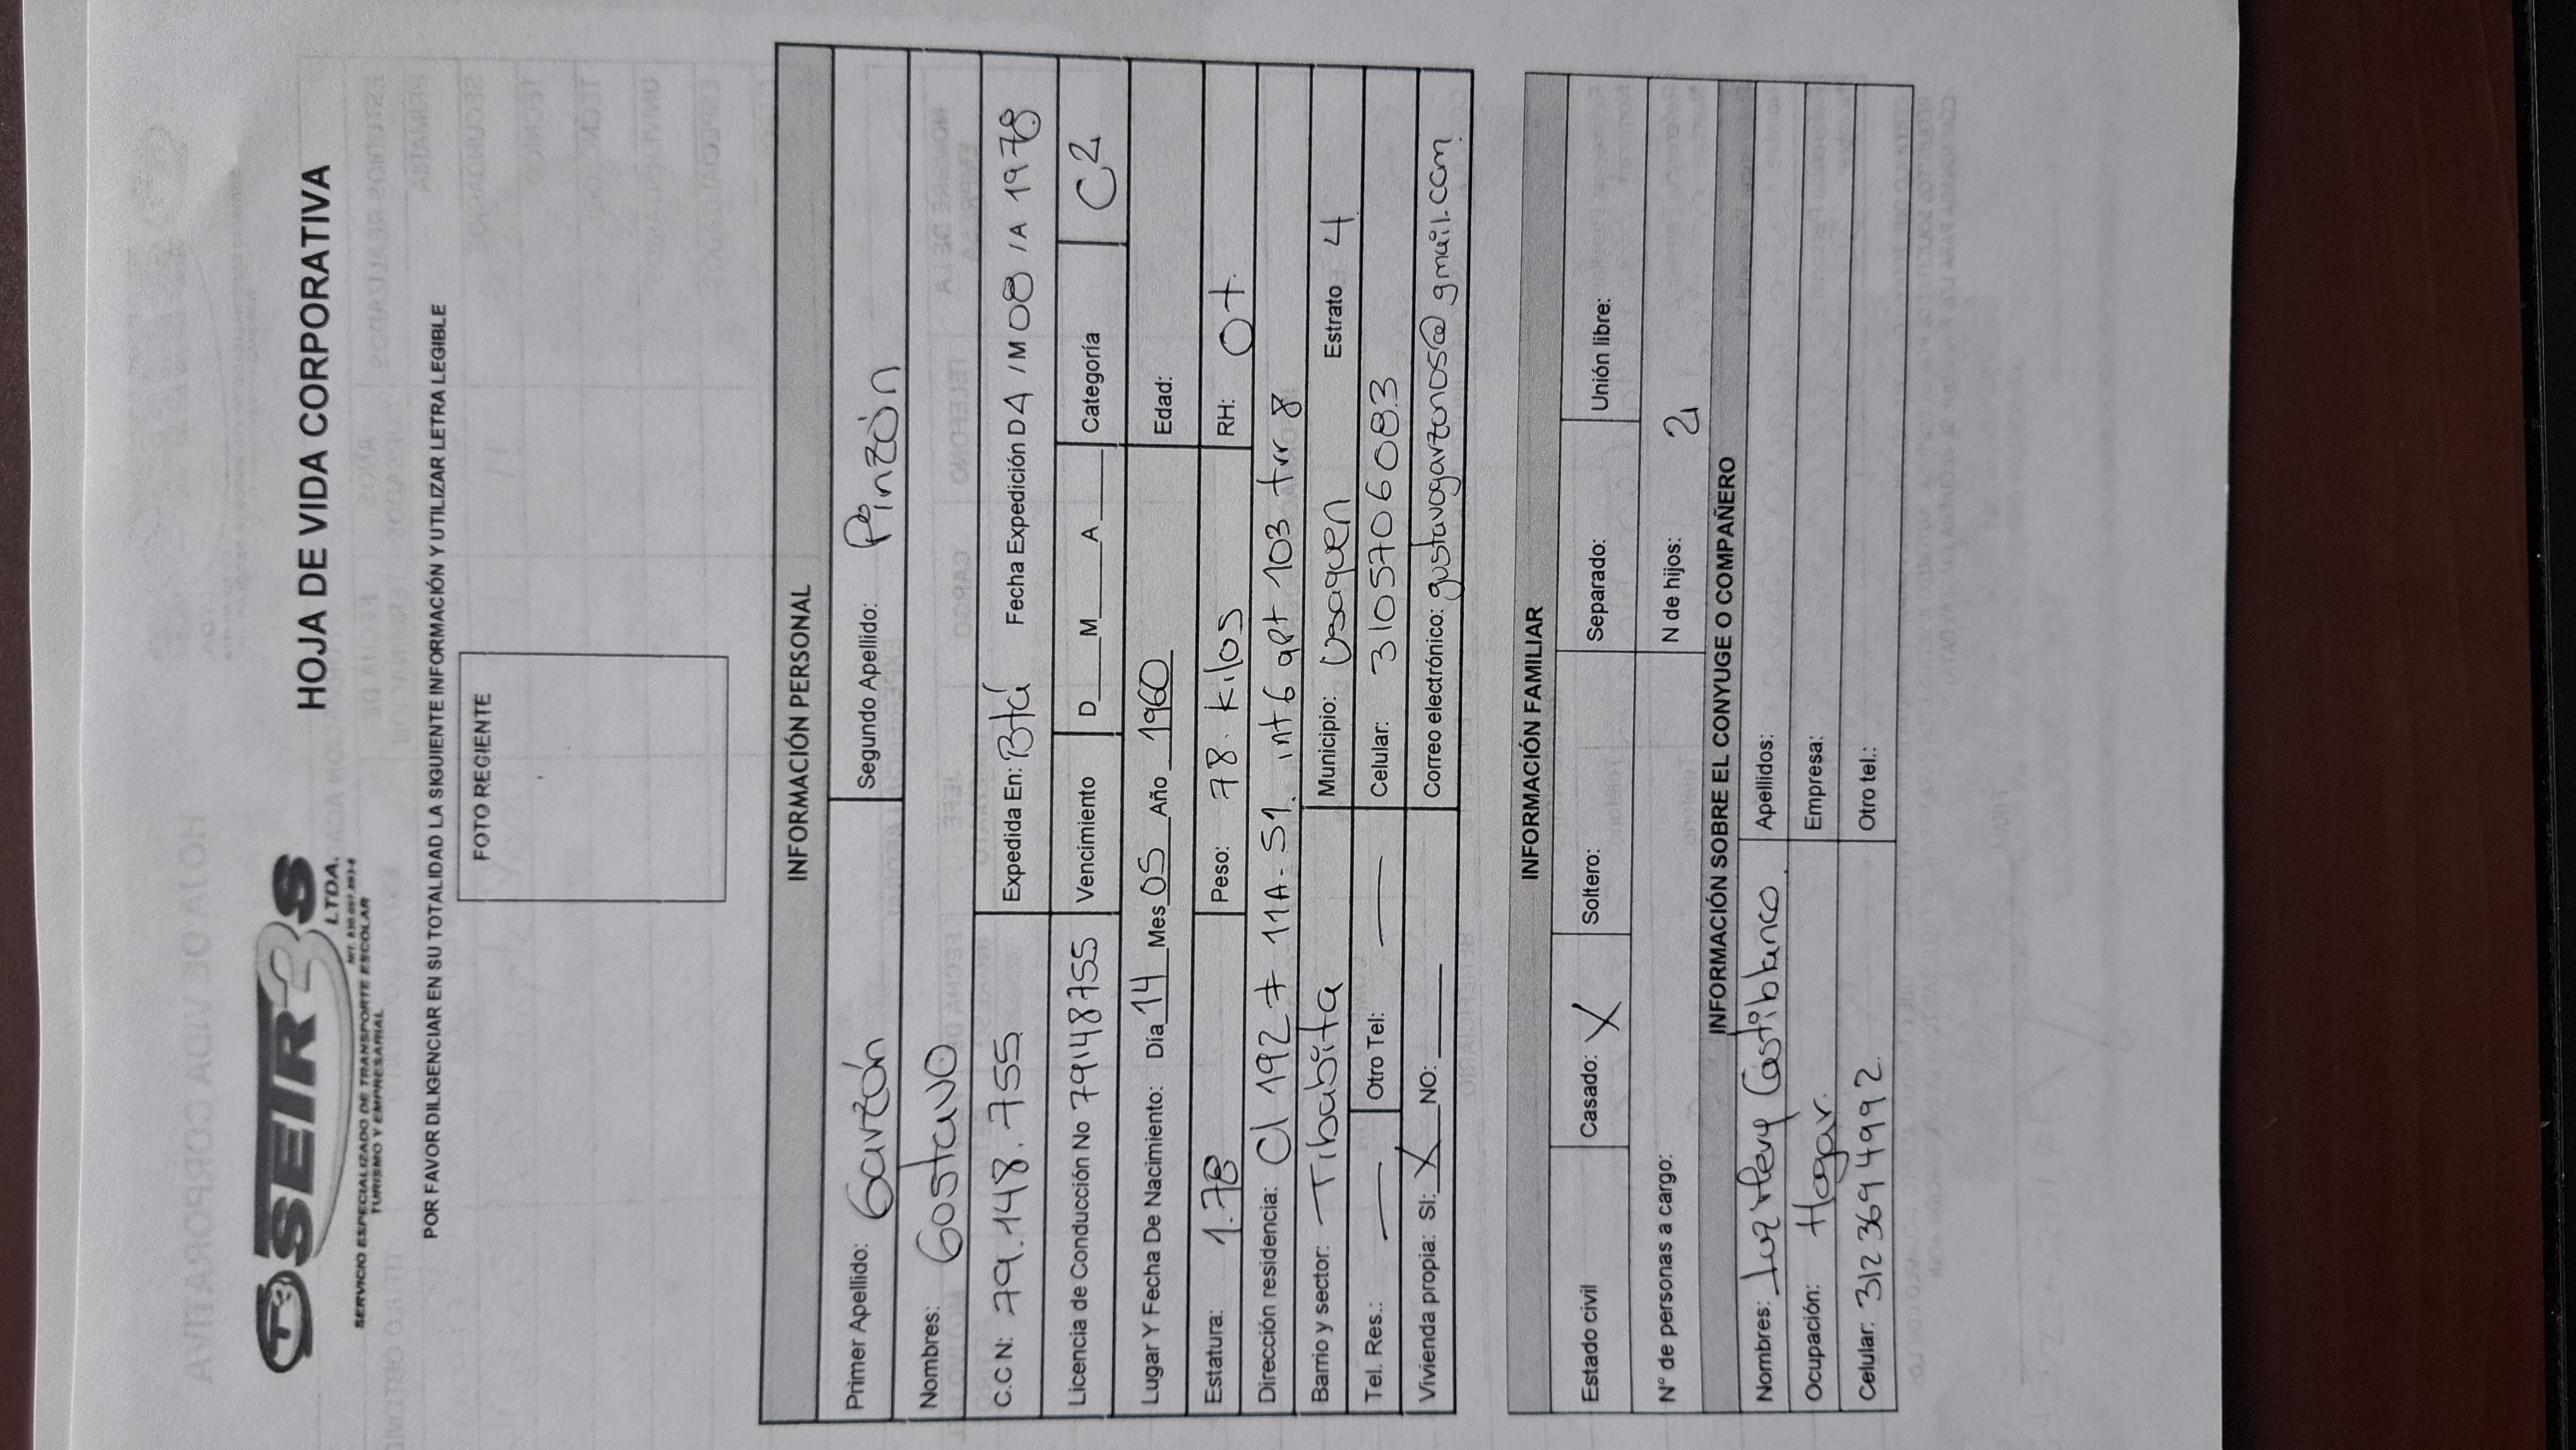 SEIR3S
LTDA.
NIT. 830.097.893-4
SERVICIO ESPECIALIZADO DE TRANSPORTE ESCOLAR
TURISMO Y EMPRESARIAL
HOJA DE VIDA CORPORATIVA
POR FAVOR DILIGENCIAR EN SU TOTALIDAD LA SIGUIENTE INFORMACIÓN Y UTILIZAR LETRA LEGIBLE
FOTO RECIENTE
INFORMACIÓN PERSONAL
Primer Apellido: Garzón Segundo Apellido: Pinzón
Nombres: Gustavo
C.C N: 79.148.755 Expedida En: Btá Fecha Expedición D4 /M 08 /A 1978
Licencia de Conducción No 79148755 Vencimiento D___M___A___ Categoría C2
Lugar Y Fecha De Nacimiento: Día 14 Mes 05 Año 1960 Edad:
Estatura: 1.78 Peso: 78. kilos RH: O+
Dirección residencia: Cl 192 # 11A-51. int 6 apt 103 trr 8
Barrio y sector: Tibabita Municipio: Usaquen Estrato 4
Tel. Res.: — Otro Tel: — Celular: 3105706083
Vivienda propia: SI: X NO: ____ Correo electrónico: gustavogarzon05@gmail.com
INFORMACIÓN FAMILIAR
Estado civil Casado: X Soltero: Separado: Unión libre:
N° de personas a cargo: N de hijos: 2
INFORMACIÓN SOBRE EL CONYUGE O COMPAÑERO
Nombres: Luz Castiblanco Apellidos:
Ocupación: Hogar. Empresa:
Celular: 312 3694992 Otro tel.: